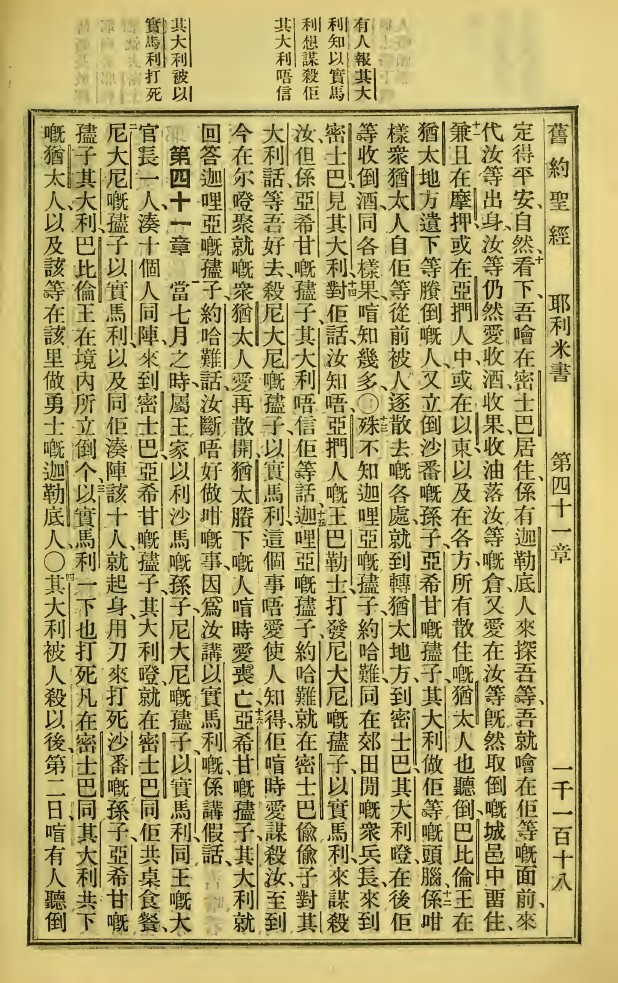 有人報其大
利知以實馬
利想謀殺佢
其大利唔信
其大利被以
實馬利打死
舊約聖經　耶利米書　第四十一章　一千一百十八
定得平安、自然看下、十吾噲在密士巴居住、係有迦勒底人來探吾等、吾就噲在佢等嘅面前、來
代汝等出身、汝等仍然愛收酒收果收油落汝等嘅倉、又愛在汝等既然取倒嘅城邑中畱住、
十一兼且在摩押或在亞捫人中或在以東以及在各方所有散住嘅猶太人也聽倒、巴比倫王在
猶太地方遺下等賸倒嘅人、又立倒沙番嘅孫子、亞希甘嘅孻子、其大利做佢等嘅頭腦、係咁十二
樣衆猶太人自佢等從前被人逐散去嘅各處、就到轉猶太地方到密士巴其大利嶝、在後佢
等收倒酒同各樣果、啀知幾多、〇十三殊不知迦哩亞嘅孻子約哈難、同在郊田閒嘅衆兵長、來到
密士巴見其大利、十四對佢話、汝知唔亞捫人嘅王巴勒士打發尼大尼嘅孻子以實馬利、來謀殺
汝、但係亞希甘嘅孻子其大利唔信佢等話、十五迦哩亞嘅孻子約哈難、就在密士巴偸偸子對其
大利話、等吾好去殺尼大尼嘅孻子以實馬利、這個事唔愛使人知得、佢啀時愛謀殺汝、至到
今在尔嶝聚就嘅衆猶太人愛再散開、猶太賸下嘅人啀時愛喪亡、十六亞希甘嘅孻子其大利就
回答迦哩亞嘅孻子約哈難話、汝斷唔好做咁嘅事、因爲汝講以實馬利嘅係講假話、
第四十一章　一當七月之時、屬王家以利沙馬嘅孫子、尼大尼嘅孻子以實馬利、同王嘅大
官長一人、湊十個人同陣、來到密士巴亞希甘嘅孻子其大利嶝、就在密士巴同佢共桌食餐、
二尼大尼嘅孻子以實馬利、以及同佢湊陣該十人、就起身用刀來打死沙番嘅孫子、亞希甘嘅
孻子其大利、巴比倫王在境內所立倒个、三以實馬利一下也打死凡在密士巴同其大利共下
嘅猶太人、以及該等在該里做勇士嘅迦勒底人、〇四其大利被人殺以後第二日、啀有人聽倒